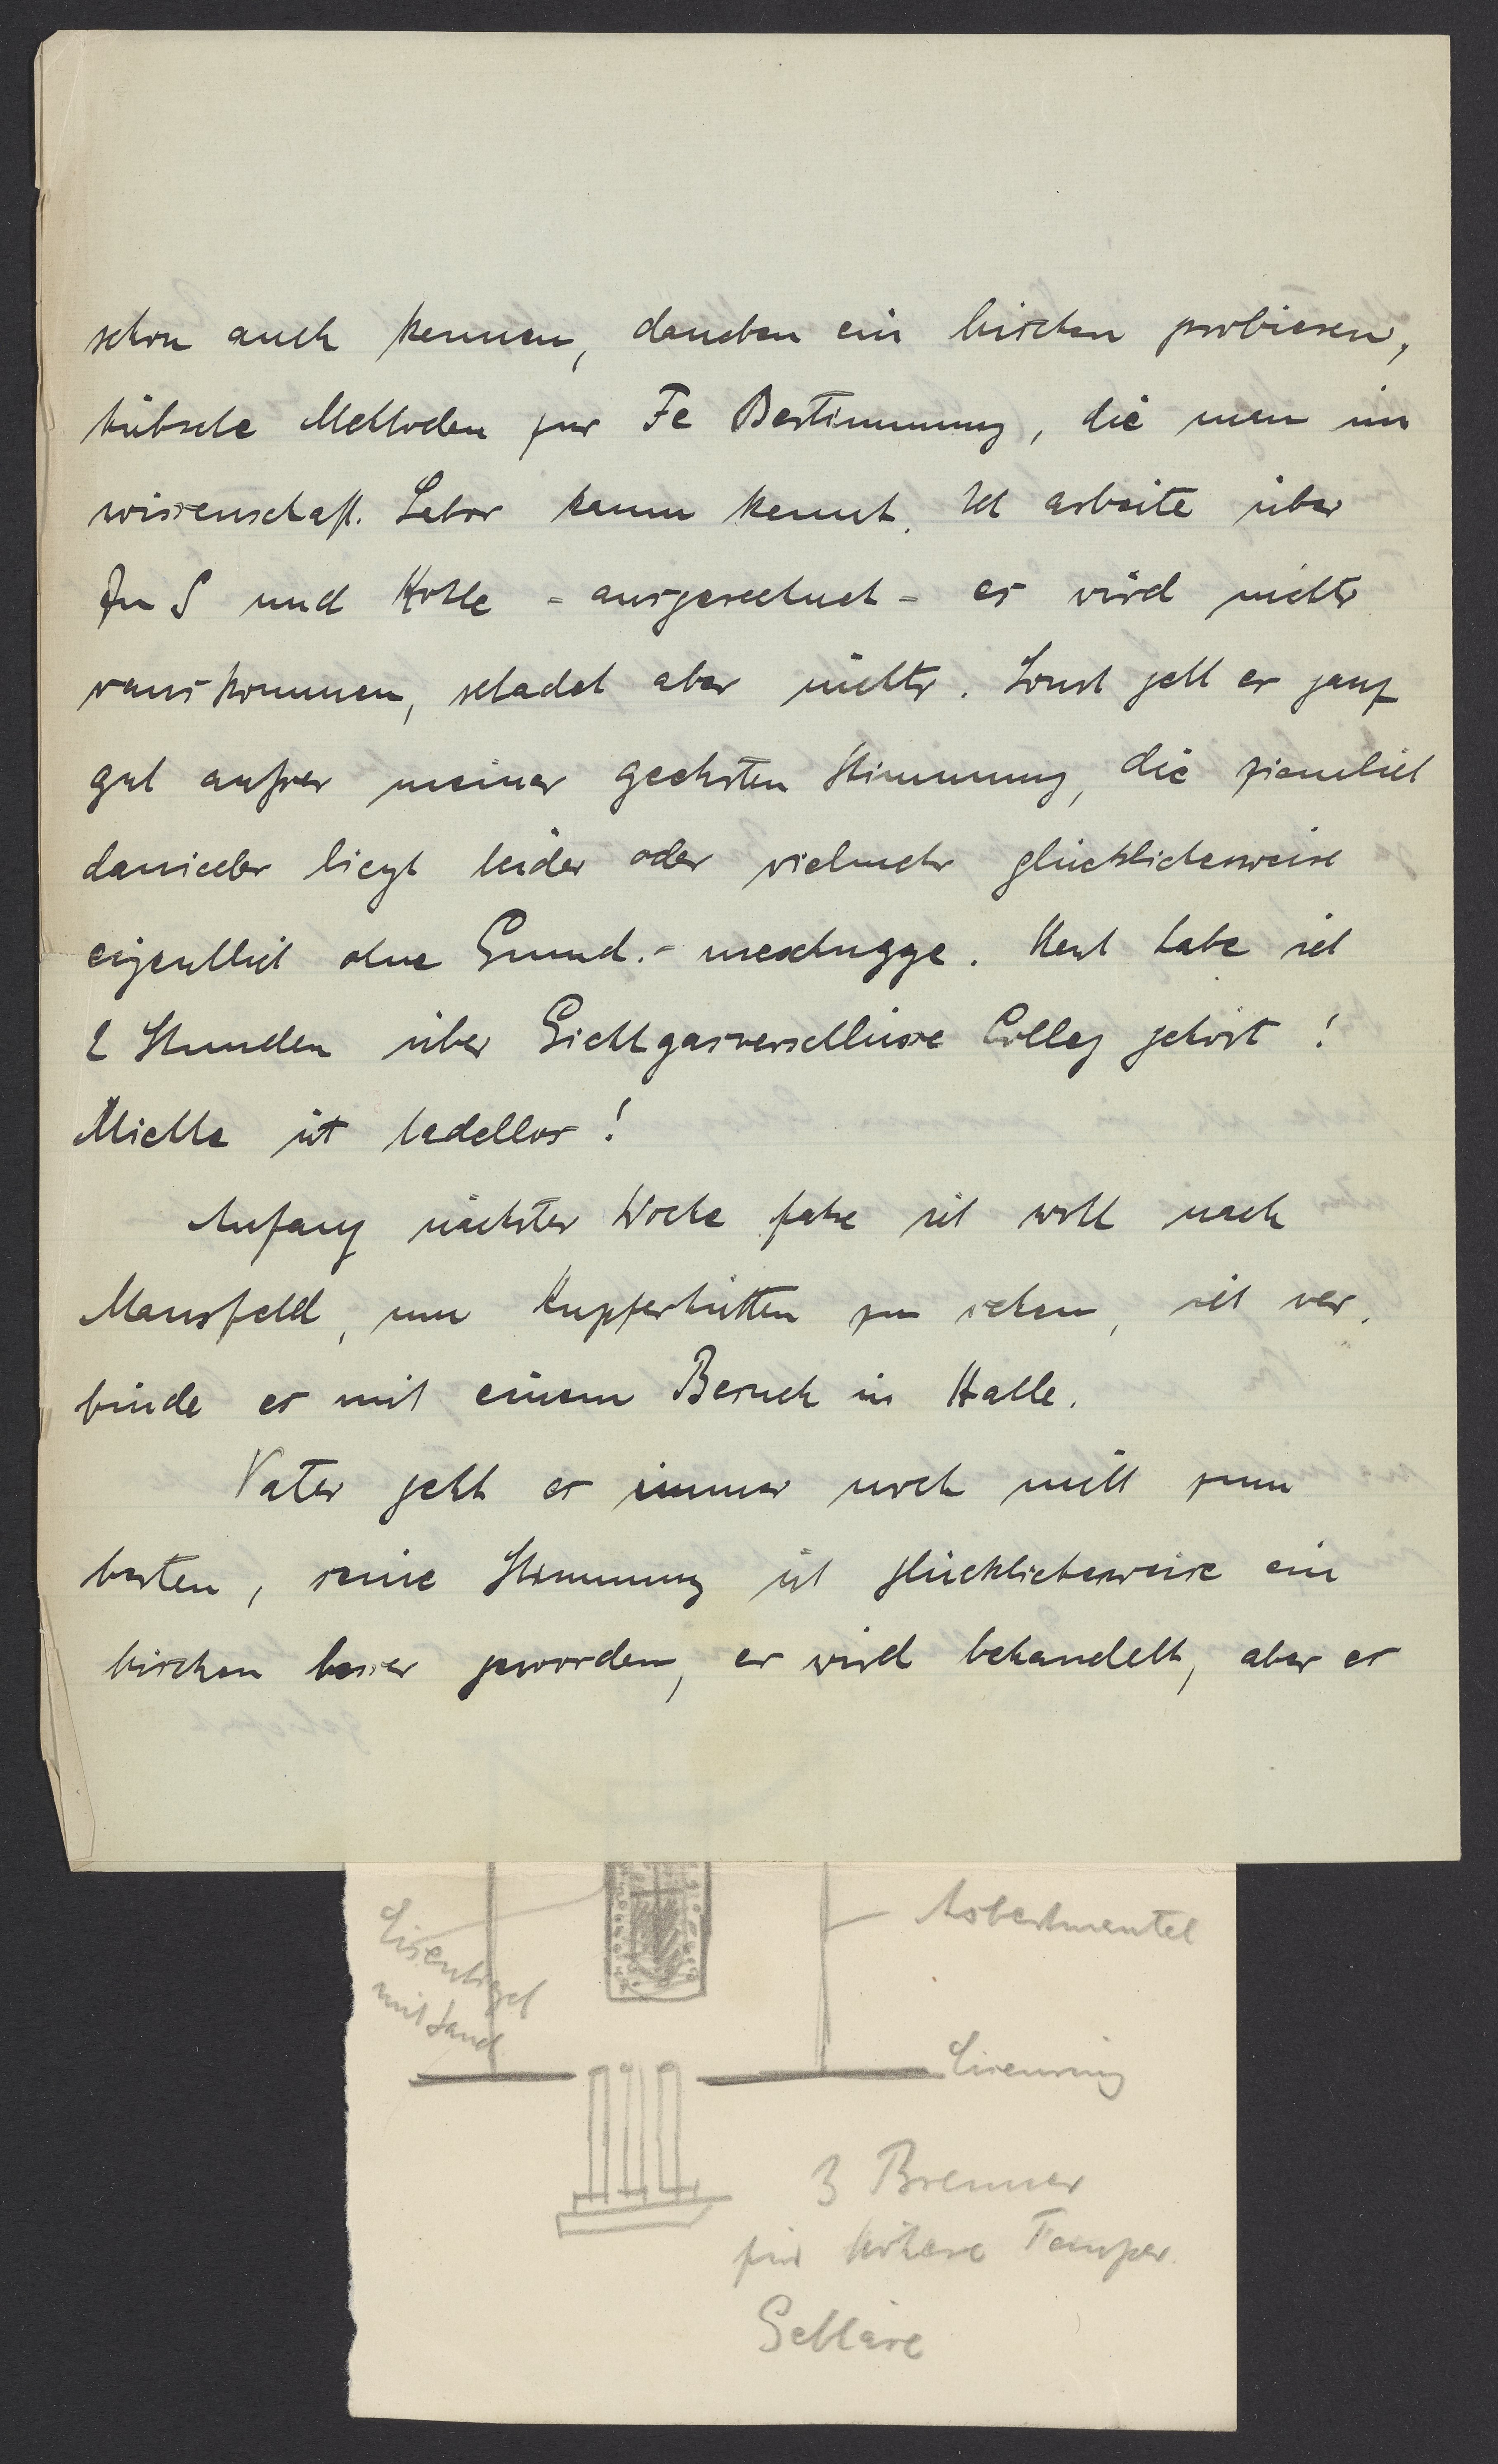 schon auch kennen, daneben ein bischen probieren,
hübsche Methoden zur Fe Bestimmung, die man im
wissenschaftl. Labor kaum kennt. Ich arbeite über
ZnS und Kohle - ausgerechnet - es wird nichts
rauskommen, schadet aber nichts. Sonst geht es ganz
gut außer meiner geehrten Stimmung, die ziemlich
danieder liegt leider oder vielmehr glücklicherweise
eigentlich ohne Grund. - meschugge. Heut habe ich
2 Stunden über Gichtgasverschlüsse Colleg gehört!
Miethe ist tadellos!
Anfang nächster Woche fahre ich wohl nach
Mansfeld, um Kupferhütten zu sehen, ich ver-
binde es mit einem Besuch in Halle.
Vater geht es immer noch nicht zum
besten, seine Stimmung ist glücklicherweise ein
bischen besser geworden, er wird behandelt, aber er
Eisentiegel
mit Sand
Asbestmantel
Eisenring
3 Brenner
für höhere Temper.
Gebläse